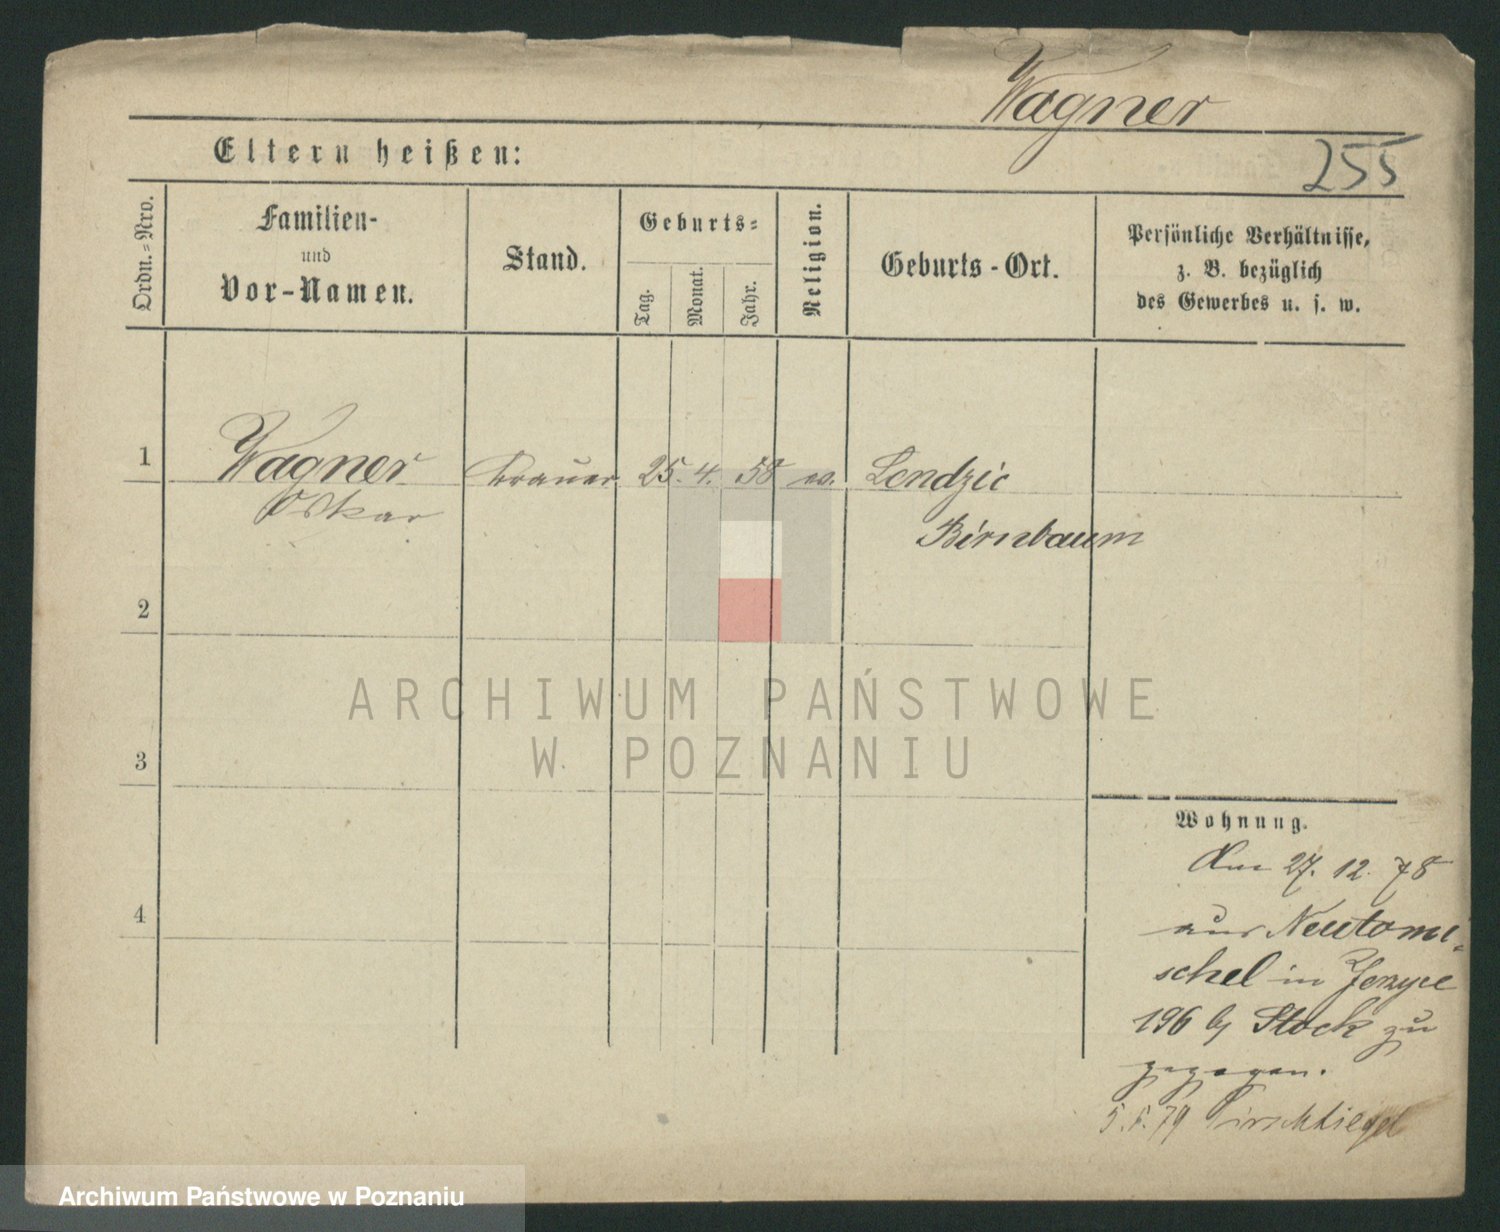 Wagner
255
Eltern heißen:
Ordn.=Nro.
Familien-
und
Vor-Namen.
Stand.
Geburts=
Tag.
Monat.
Jahr.
Religion.
Geburts-Ort.
Persönliche Verhältnisse,
z. B. bezüglich
des Gewerbes u. s. w.
1
Wagner Brauer 25. 4. 58 ev. Lendzic
Oskar
Birnbaum
2
3
4
ARCHIWUM PAŃSTWOWE
W POZNANIU
Wohnung.
Am 27. 12. 78
aus Neutomi-
schel in Jerzyce
196 by Stock zu
gezogen.
5. 5. 79 Tirschtiegel
Archiwum Państwowe w Poznaniu